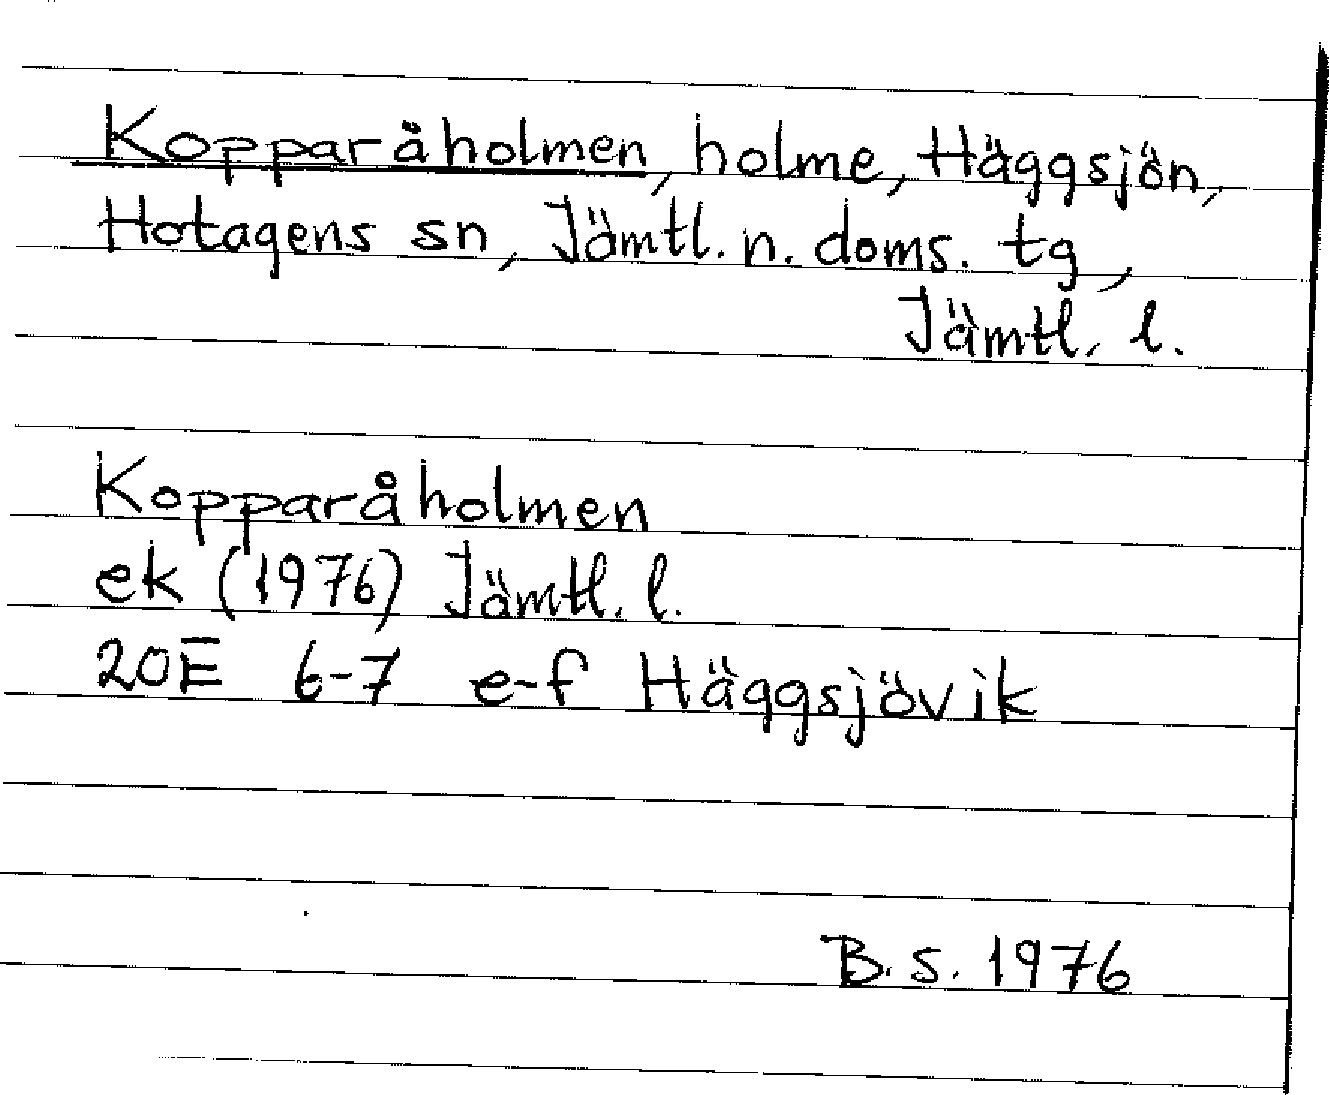 Kopparåholmen, holme, Häggsjön,
Hotagens sn, Jämtl. n. doms. tg,
Jämtl. l.
Kopparåholmen
ek (1976) Jämtl. l.
20E 6-7 e-f Häggsjövik
B.S. 1976